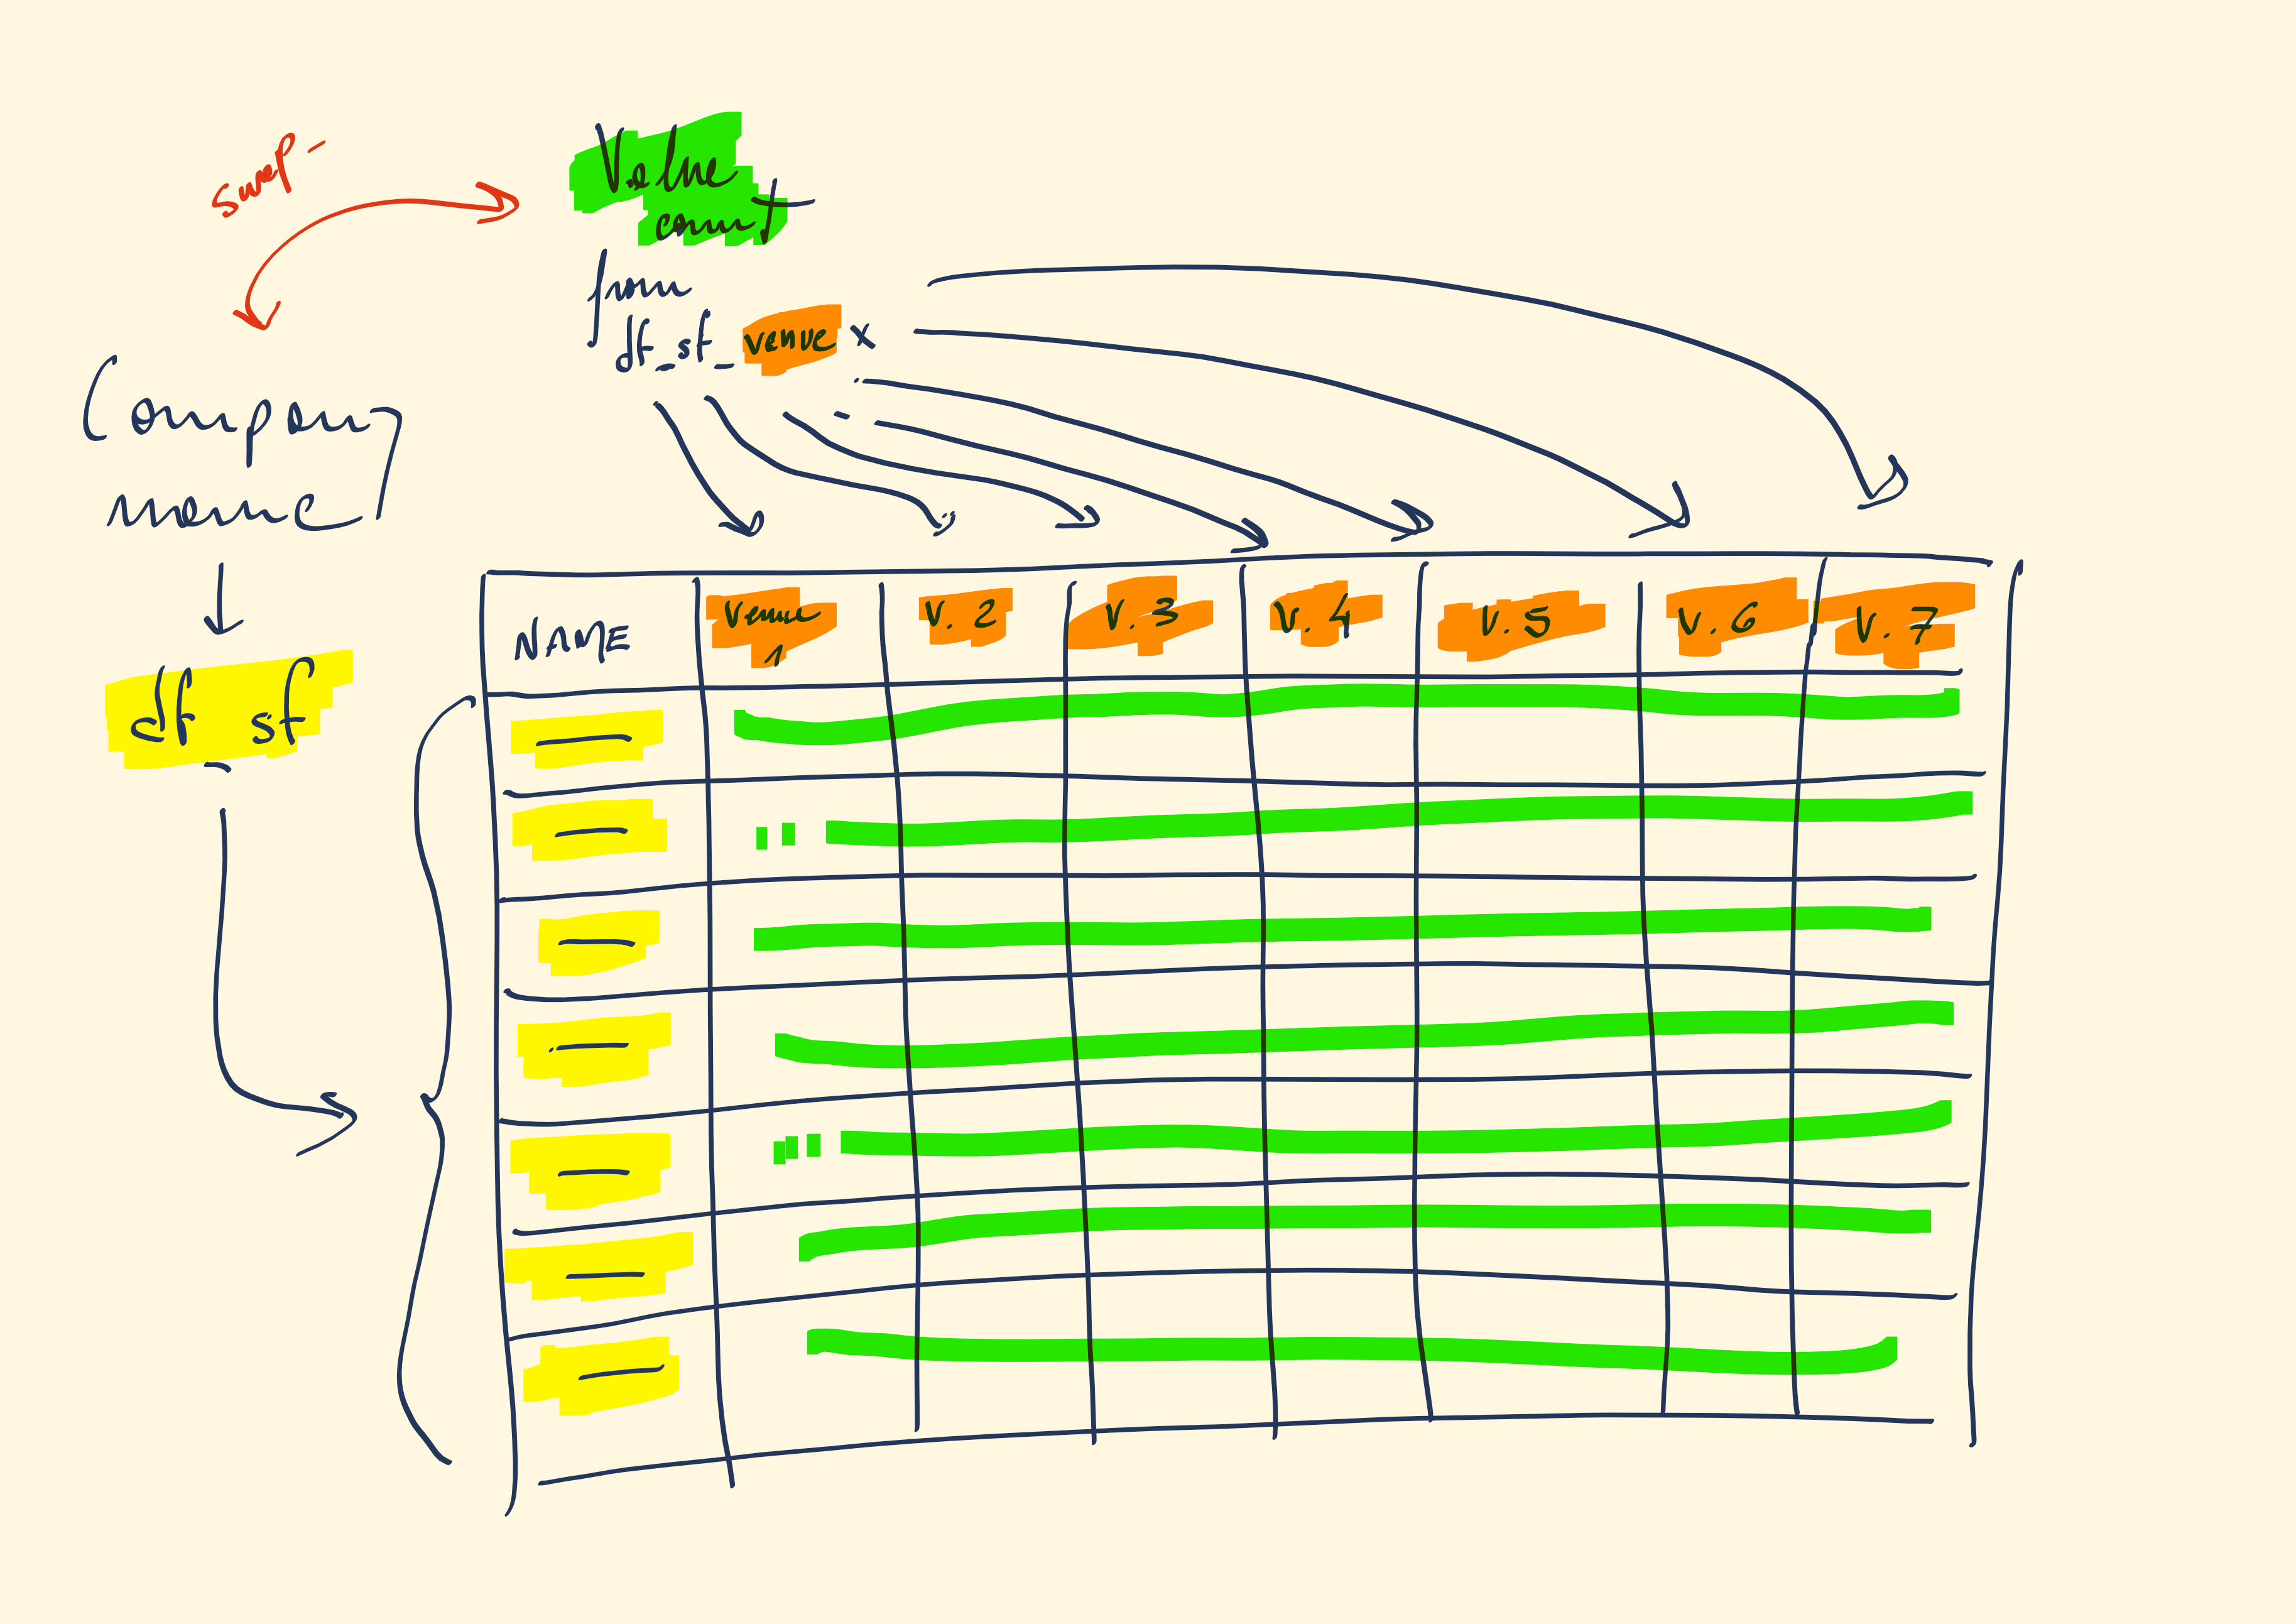 swap
Value
count
from
df_sf_venue x
Company
name
df sf
NAME
Venue 1
V. 2
V. 3
V. 4
V. 5
V. 6
V. 7